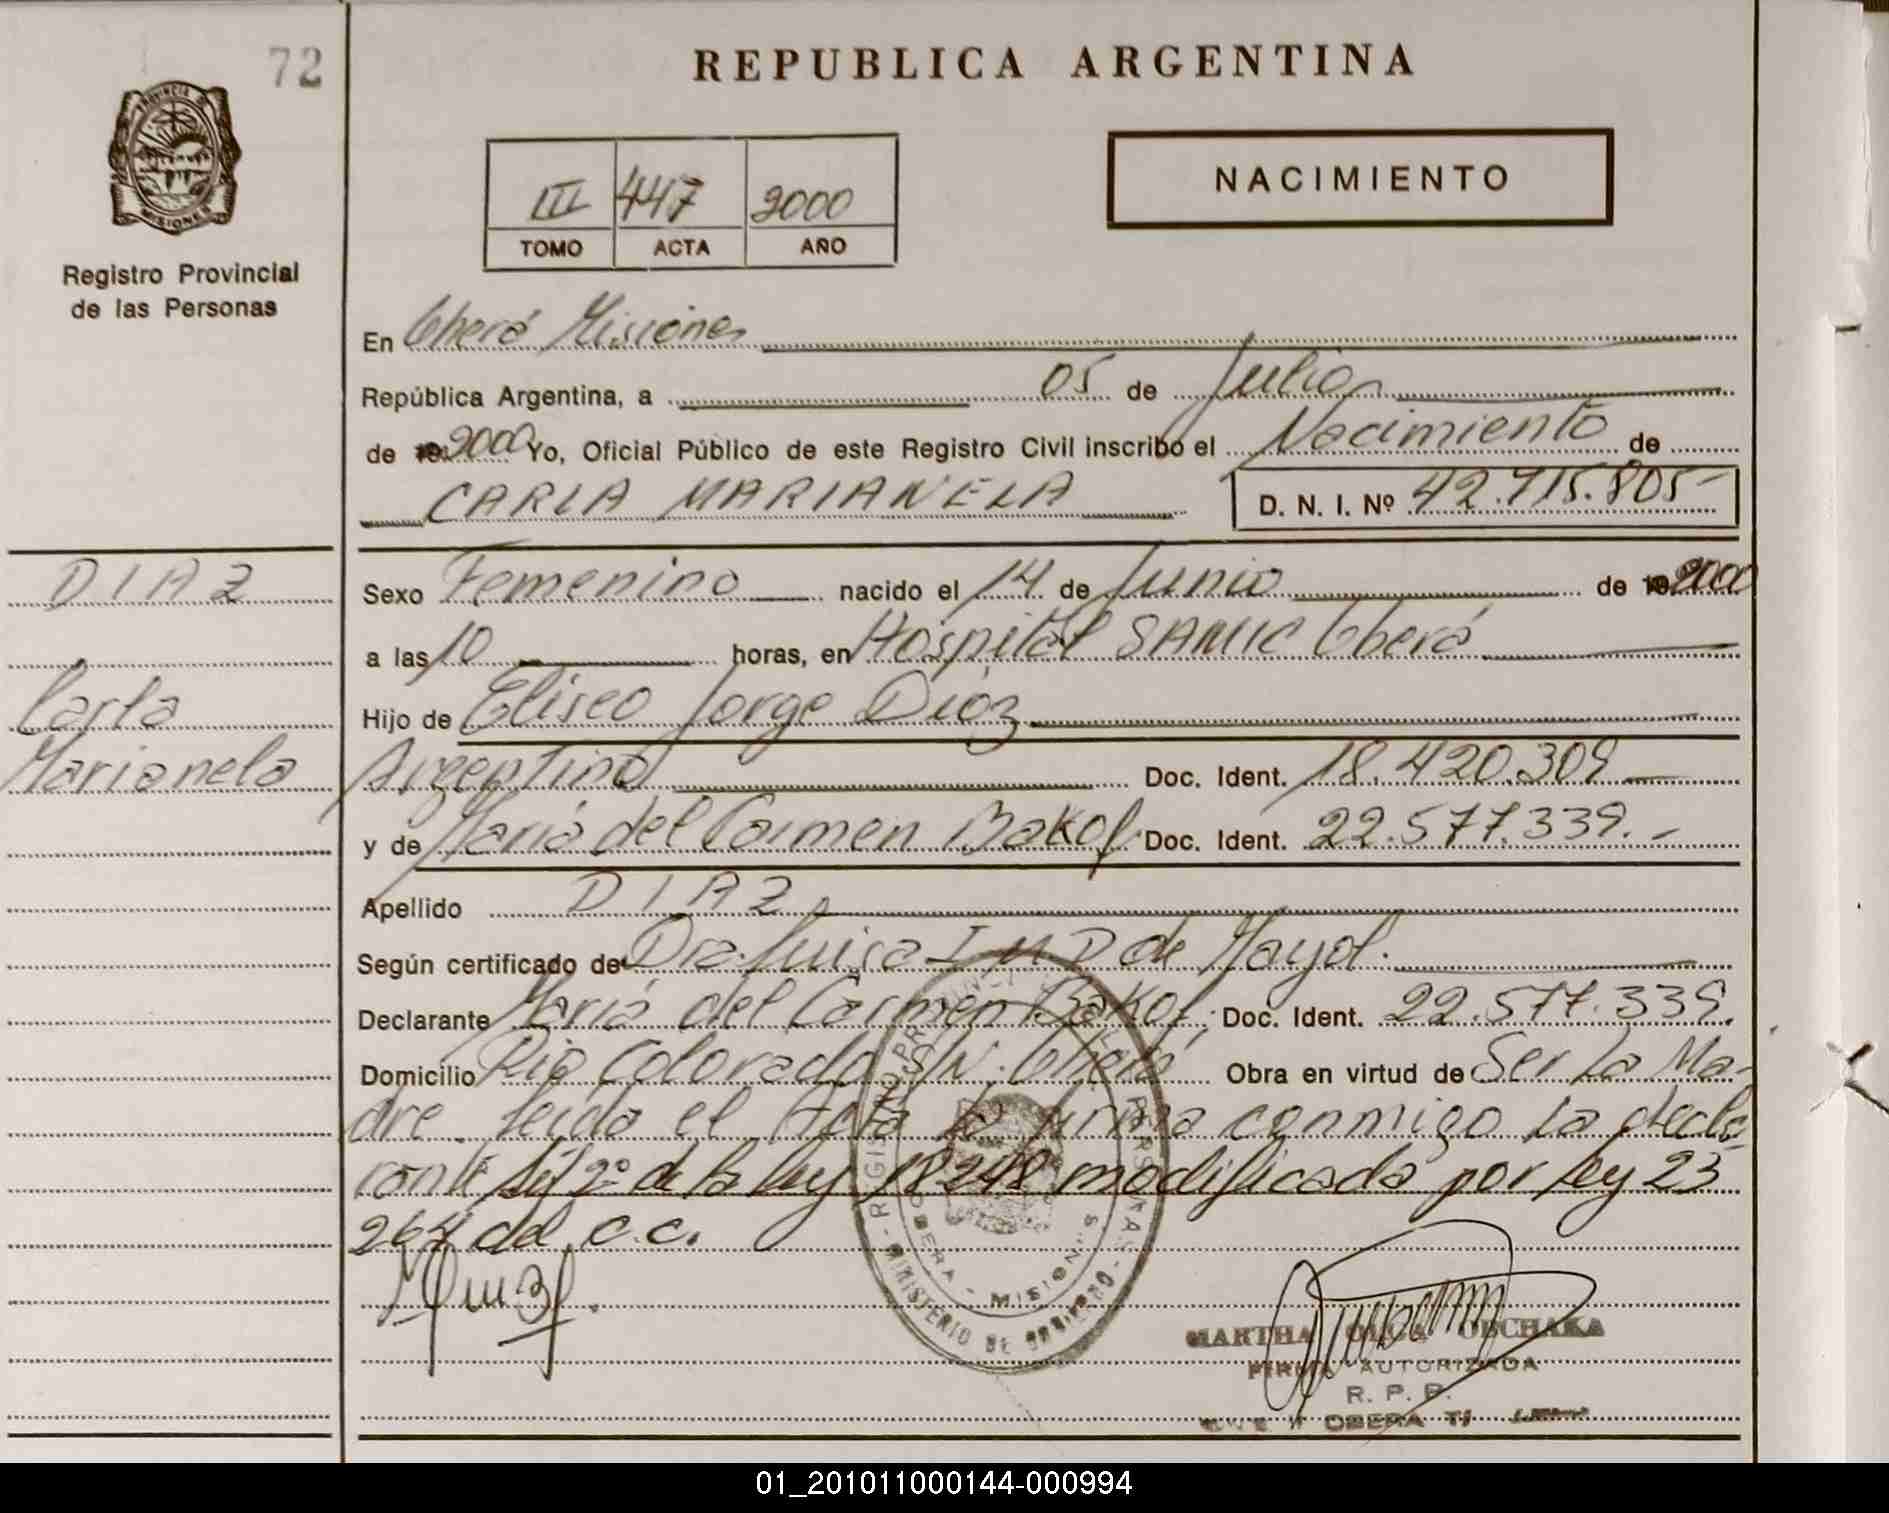 72
REPUBLICA ARGENTINA
PROVINCIA DE
MISIONES
Registro Provincial
de las Personas
III 447 2000
TOMO ACTA AÑO
NACIMIENTO
En Oberá Misiones
República Argentina, a 05 de Julio
de 2000 Yo, Oficial Público de este Registro Civil inscribo el Nacimiento de
CARLA MARIANELA D. N. I. Nº 42.715.805-
DIAZ
Carla
Marianela
Sexo Femenino nacido el 14 de Junio de 2000
a las 10 horas, en Hospital SAMIC Oberá
Hijo de Eliseo Jorge Diáz
Argentino Doc. Ident. 18.420.309
y de María del Carmen Bakof. Doc. Ident. 22.577.339.-
Apellido DIAZ
Según certificado de Dra. Luisa I M D de Mayol.
Declarante María del Carmen Bakof. Doc. Ident. 22.577.339.
Domicilio Rio Colorado S/N. Oberá Obra en virtud de Ser La Ma-
dre. Leída el Acta la firma conmigo la decla-
rante 2º de la ley 18248 modificada por ley 23
264 del c.c.
MINISTERIO DE GOBIERNO
OBERA - MISIONES
MARTHA OLGA OBCHAKA
FIRMA AUTORIZADA
R. P. P.
OBERA
01_201011000144-000994